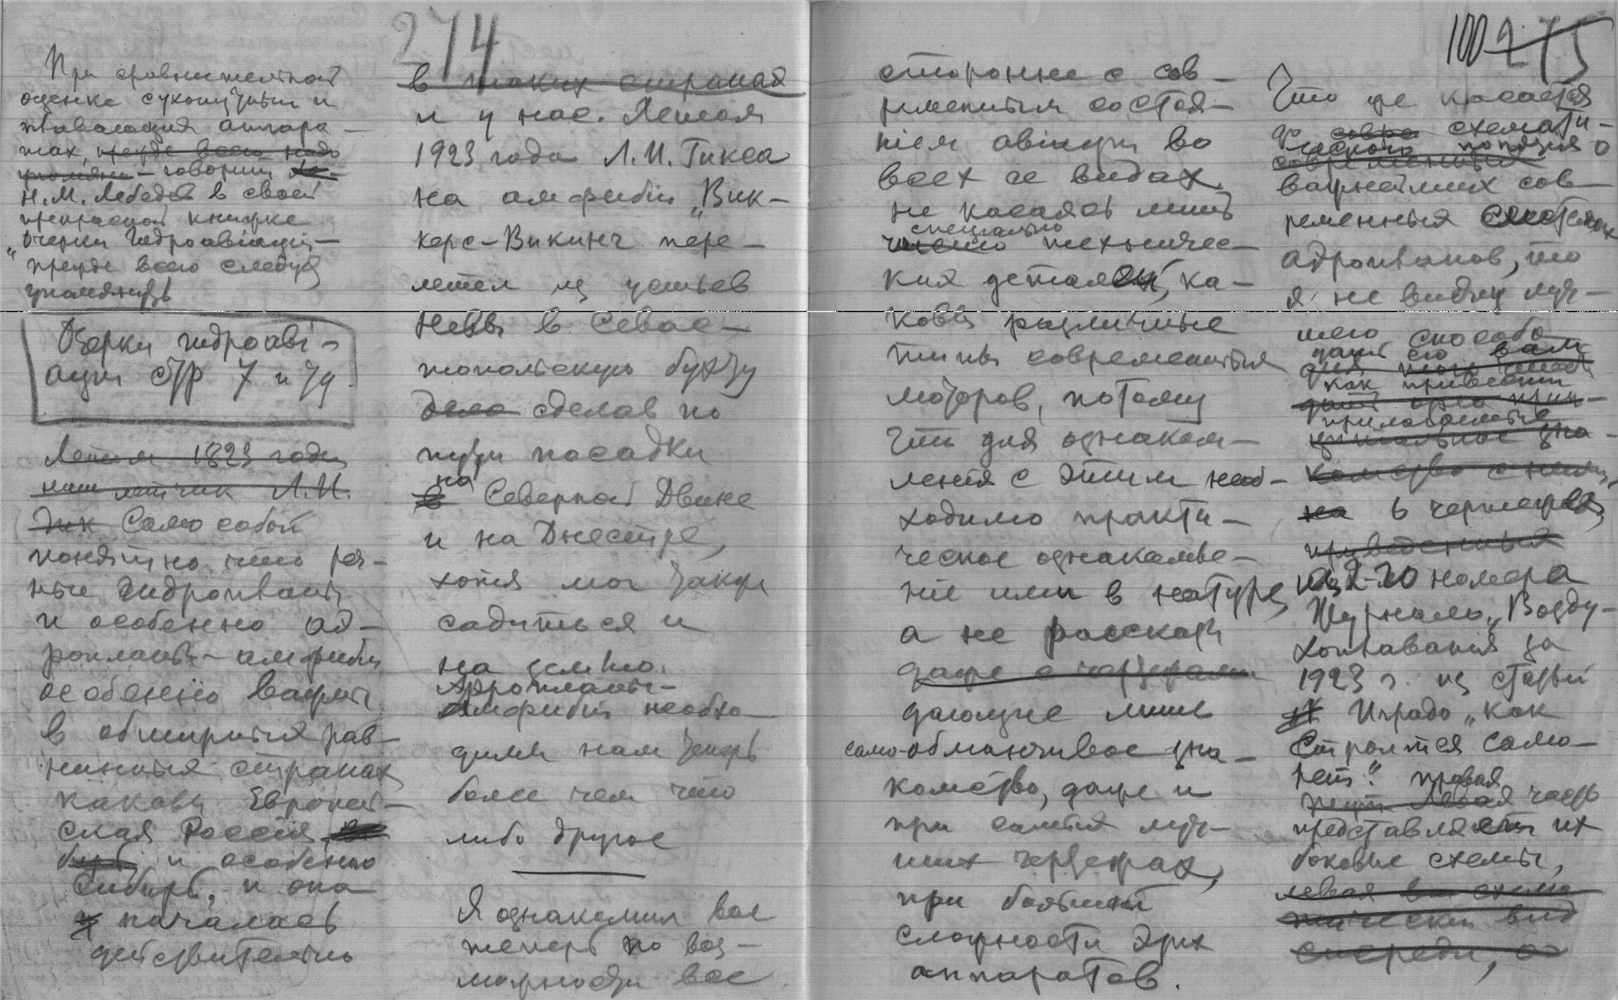 274
При сравнительной
оценке сухопутных и
плавающих аппара-
тах, прежде всего надо
упомян - говорит
Н.М. Лебедев в своей
прекрасной книжке
"Очерки гидроавіаціи" -
прежде всего следует
упомянуть
Очерки гидроаві-
аціи стр 7 и 79
Летом 1823 года
наш летчик Л.И.
Само собой
понятно, что реч-
ные гидропланы
и особенно аэ-
ропланы-амфибіи
особенно важны
в обширных рав-
нинных странах
каковы Европей-
ская Россия
и особенно
Сибирь, и она
началась
действительно
в таких странах
и у нас. Летом
1923 года Л.И. Гикса
на амфибіи "Вик-
керс-Викинг пере-
летел из устьев
Невы в Севас-
топольскую бухту
сделав по
пути посадки
на Северной Двине
и на Днестре,
хотя мог также
садиться и
на землю.
Аэропланы-
Амфибіи необхо-
димы нам теперь
более чем что
либо другое
Я ознакомил вас
теперь по воз-
можности все
100 275
стороннее с сов-
ременным состоя-
ніем авіаціи во
всех ее видах,
не касаясь лишь
специально
чисто техничес-
ких деталей, ка-
ковы различные
типы современных
моторов, потому
что для ознаком-
ления с этим необ-
ходимо практи-
ческое ознакомле-
ніе ими в натуре,
а не рассказы
даже с чертежами
дающие лишь
само-обманчивое зна-
комство, даже и
при самых луч-
ших чертежах,
при большой
сложности этих
аппаратов.
Что же касается
схемати-
ческого понятия о
современных
важнейших сов-
ременных системах
аэропланов, то
я не вижу луч-
шего способа
дать его вам
как привести
прилагаемые
комство с ними,
на 6 чертежей,
приведенных
из 2-го номера
Журнала "Возду-
хоплавания за
1923 г. из статьи
Иградо "Как
строится само-
лет." правая
Левая часть
представляет их
боковые схемы,
левая схема
тический вид
спереди, а